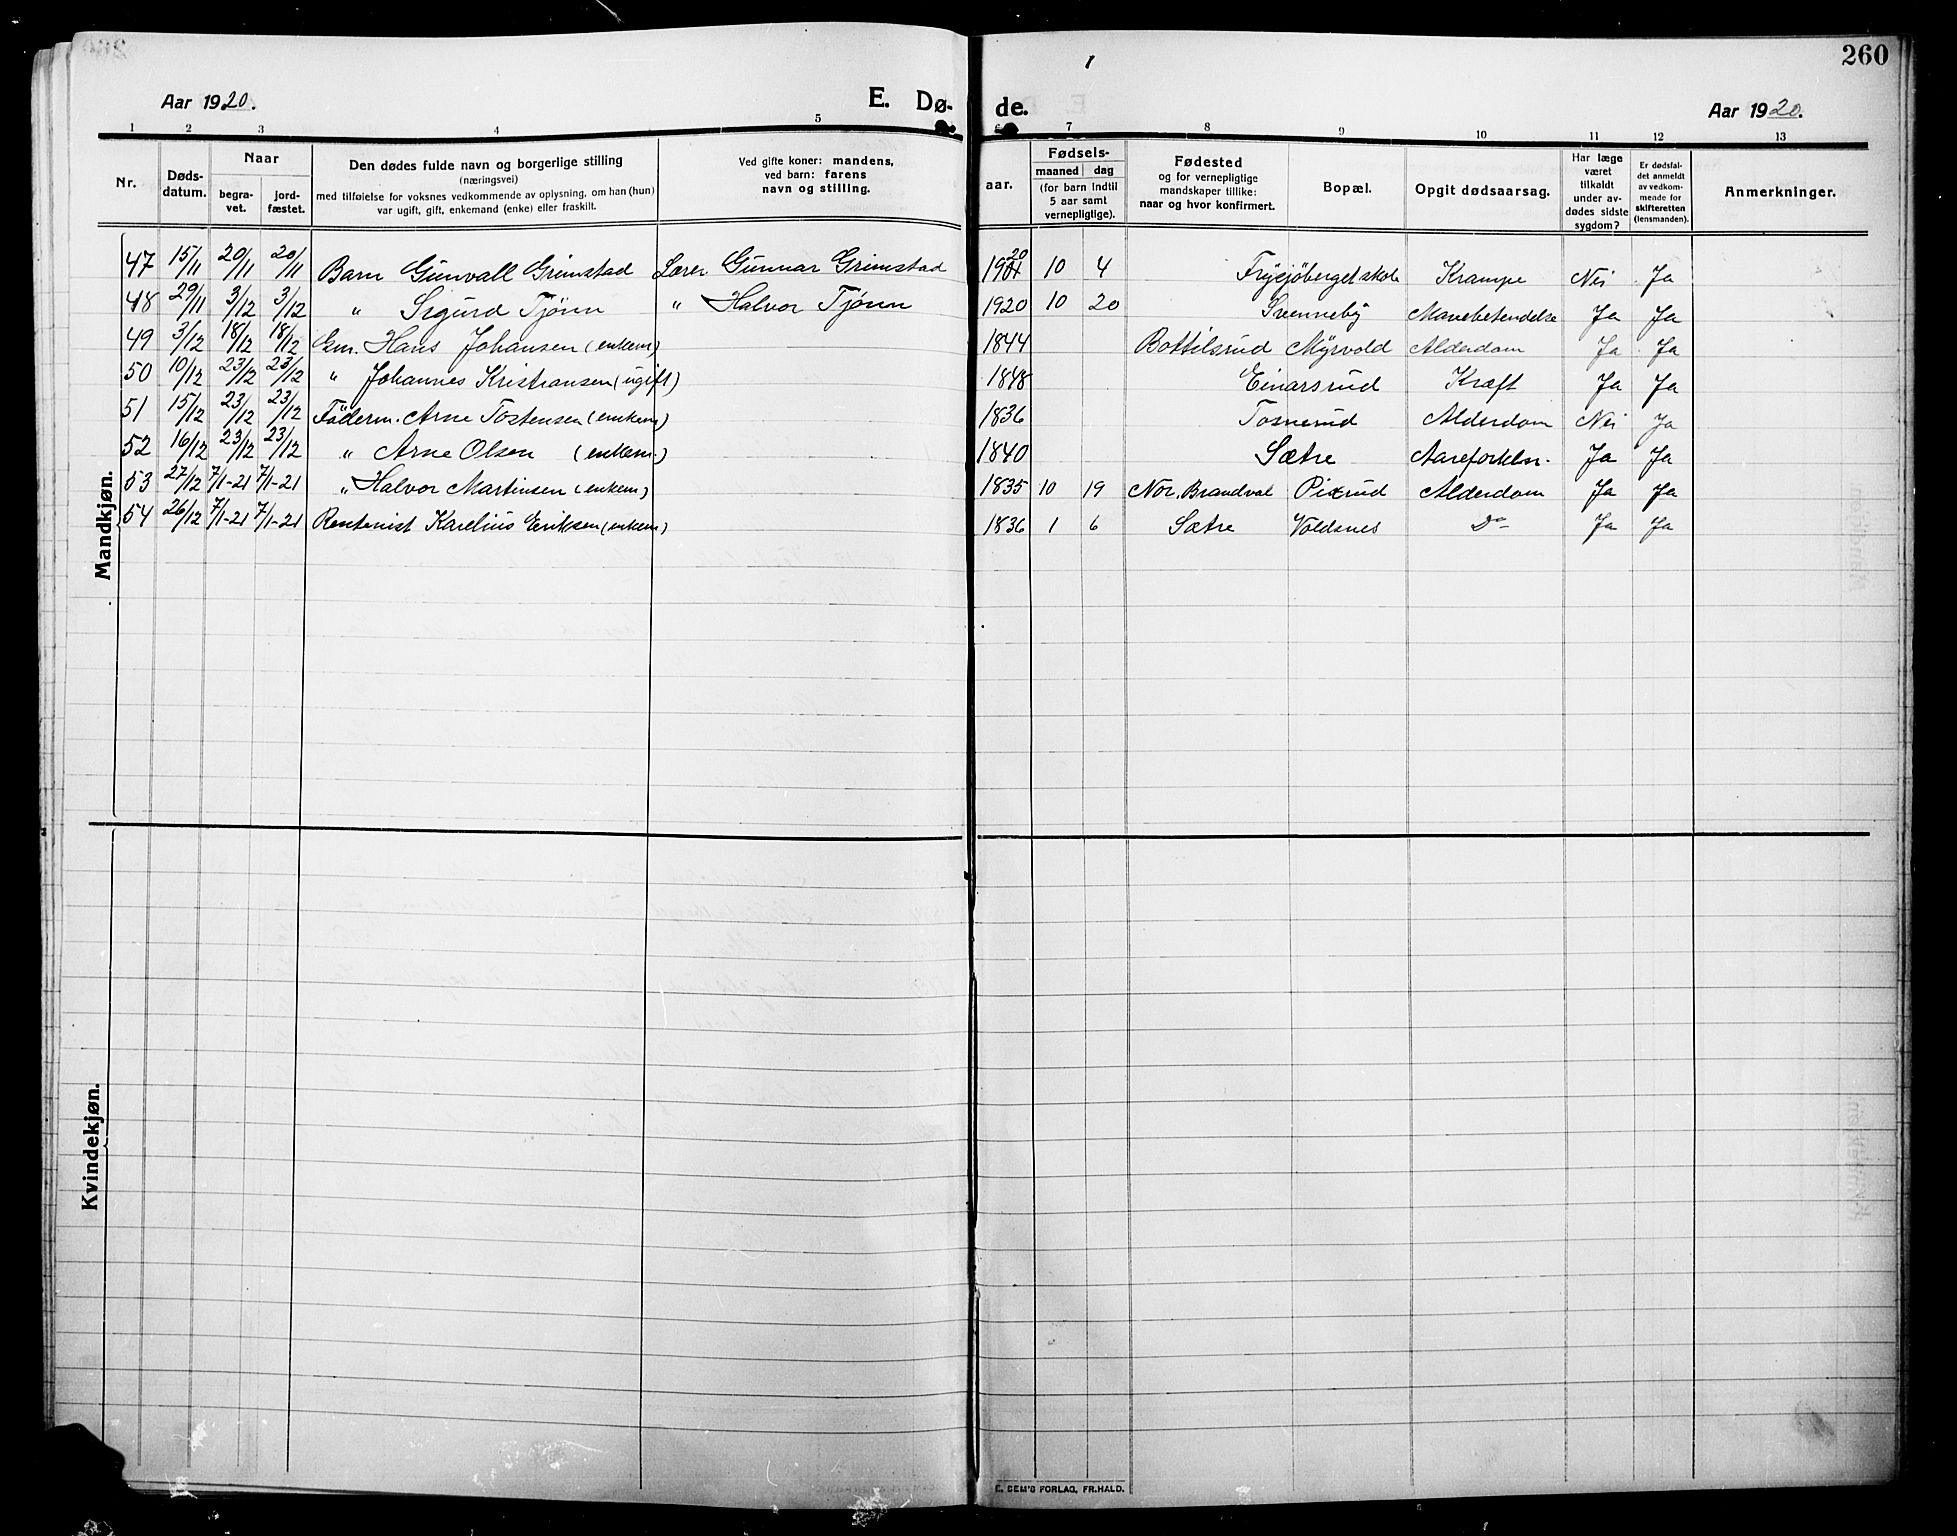 260
Aar 1920.
E. Dø-
de.
Aar 1920.
1 2 3 4 5 7 8 9 10 11 12 13
Nr.
Døds-
datum.
Naar
begra-
vet.
jord-
fæstet.
Den dødes fulde navn og borgerlige stilling
(næringsvei)
med tilføielse for voksnes vedkommende av oplysning, om han (hun)
var ugift, gift, enkemand (enke) eller fraskilt.
Ved gifte koner: mandens,
ved barn: farens
navn og stilling.
aar.
Fødsels-
maaned dag
(for barn indtil
5 aar samt
vernepligtige).
Fødested
og for vernepligtige
mandskaper tillike:
naar og hvor konfirmert.
Bopæl.
Opgit dødsaarsag.
Har læge
været
tilkaldt
under av-
dødes sidste
sygdom?
Er dødsfal-
det anmeldt
av vedkom-
mende for
skifteretten
(lensmanden).
Anmerkninger.
Mandkjøn.
47 15/11 20/11 20/11 Barn Gunvall Grimstad Lærer Gunnar Grimstad 1920 10 4 Frysjøberget skole Krampe Nei Ja
48 29/11 3/12 3/12 " Sigurd Tjönn " Halvor Tjönn 1920 10 20 Svenneby Mavebetendelse Ja Ja
49 3/12 18/12 18/12 Gm. Hans Johansen (enkem) 1844 Bottilsrud Myrvold Alderdom Ja Ja
50 10/12 23/12 23/12 " Johannes Kristiansen (ugift) 1848 Einarsrud Kræft Ja Ja
51 15/12 23/12 23/12 Föderm. Arne Tostensen (enkem) 1836 Tosnerud Alderdom Nei Ja
52 16/12 23/12 23/12 " Arne Olsen (enkem.) 1840 Sætre Aareforkln. Ja Ja
53 27/12 7/1-21 7/1-21 " Halvor Martinsen (enkem) 1835 10 19 Nor, Brandval Pixrud Alderdom Ja Ja
54 26/12 7/1-21 7/1-21 Rentenist Karelius Eriksen (enkem) 1836 1 6 Sætre Voldsnes Do Ja Ja
Kvindekjøn.
E. SEM'S FORLAG, FR.HALD.